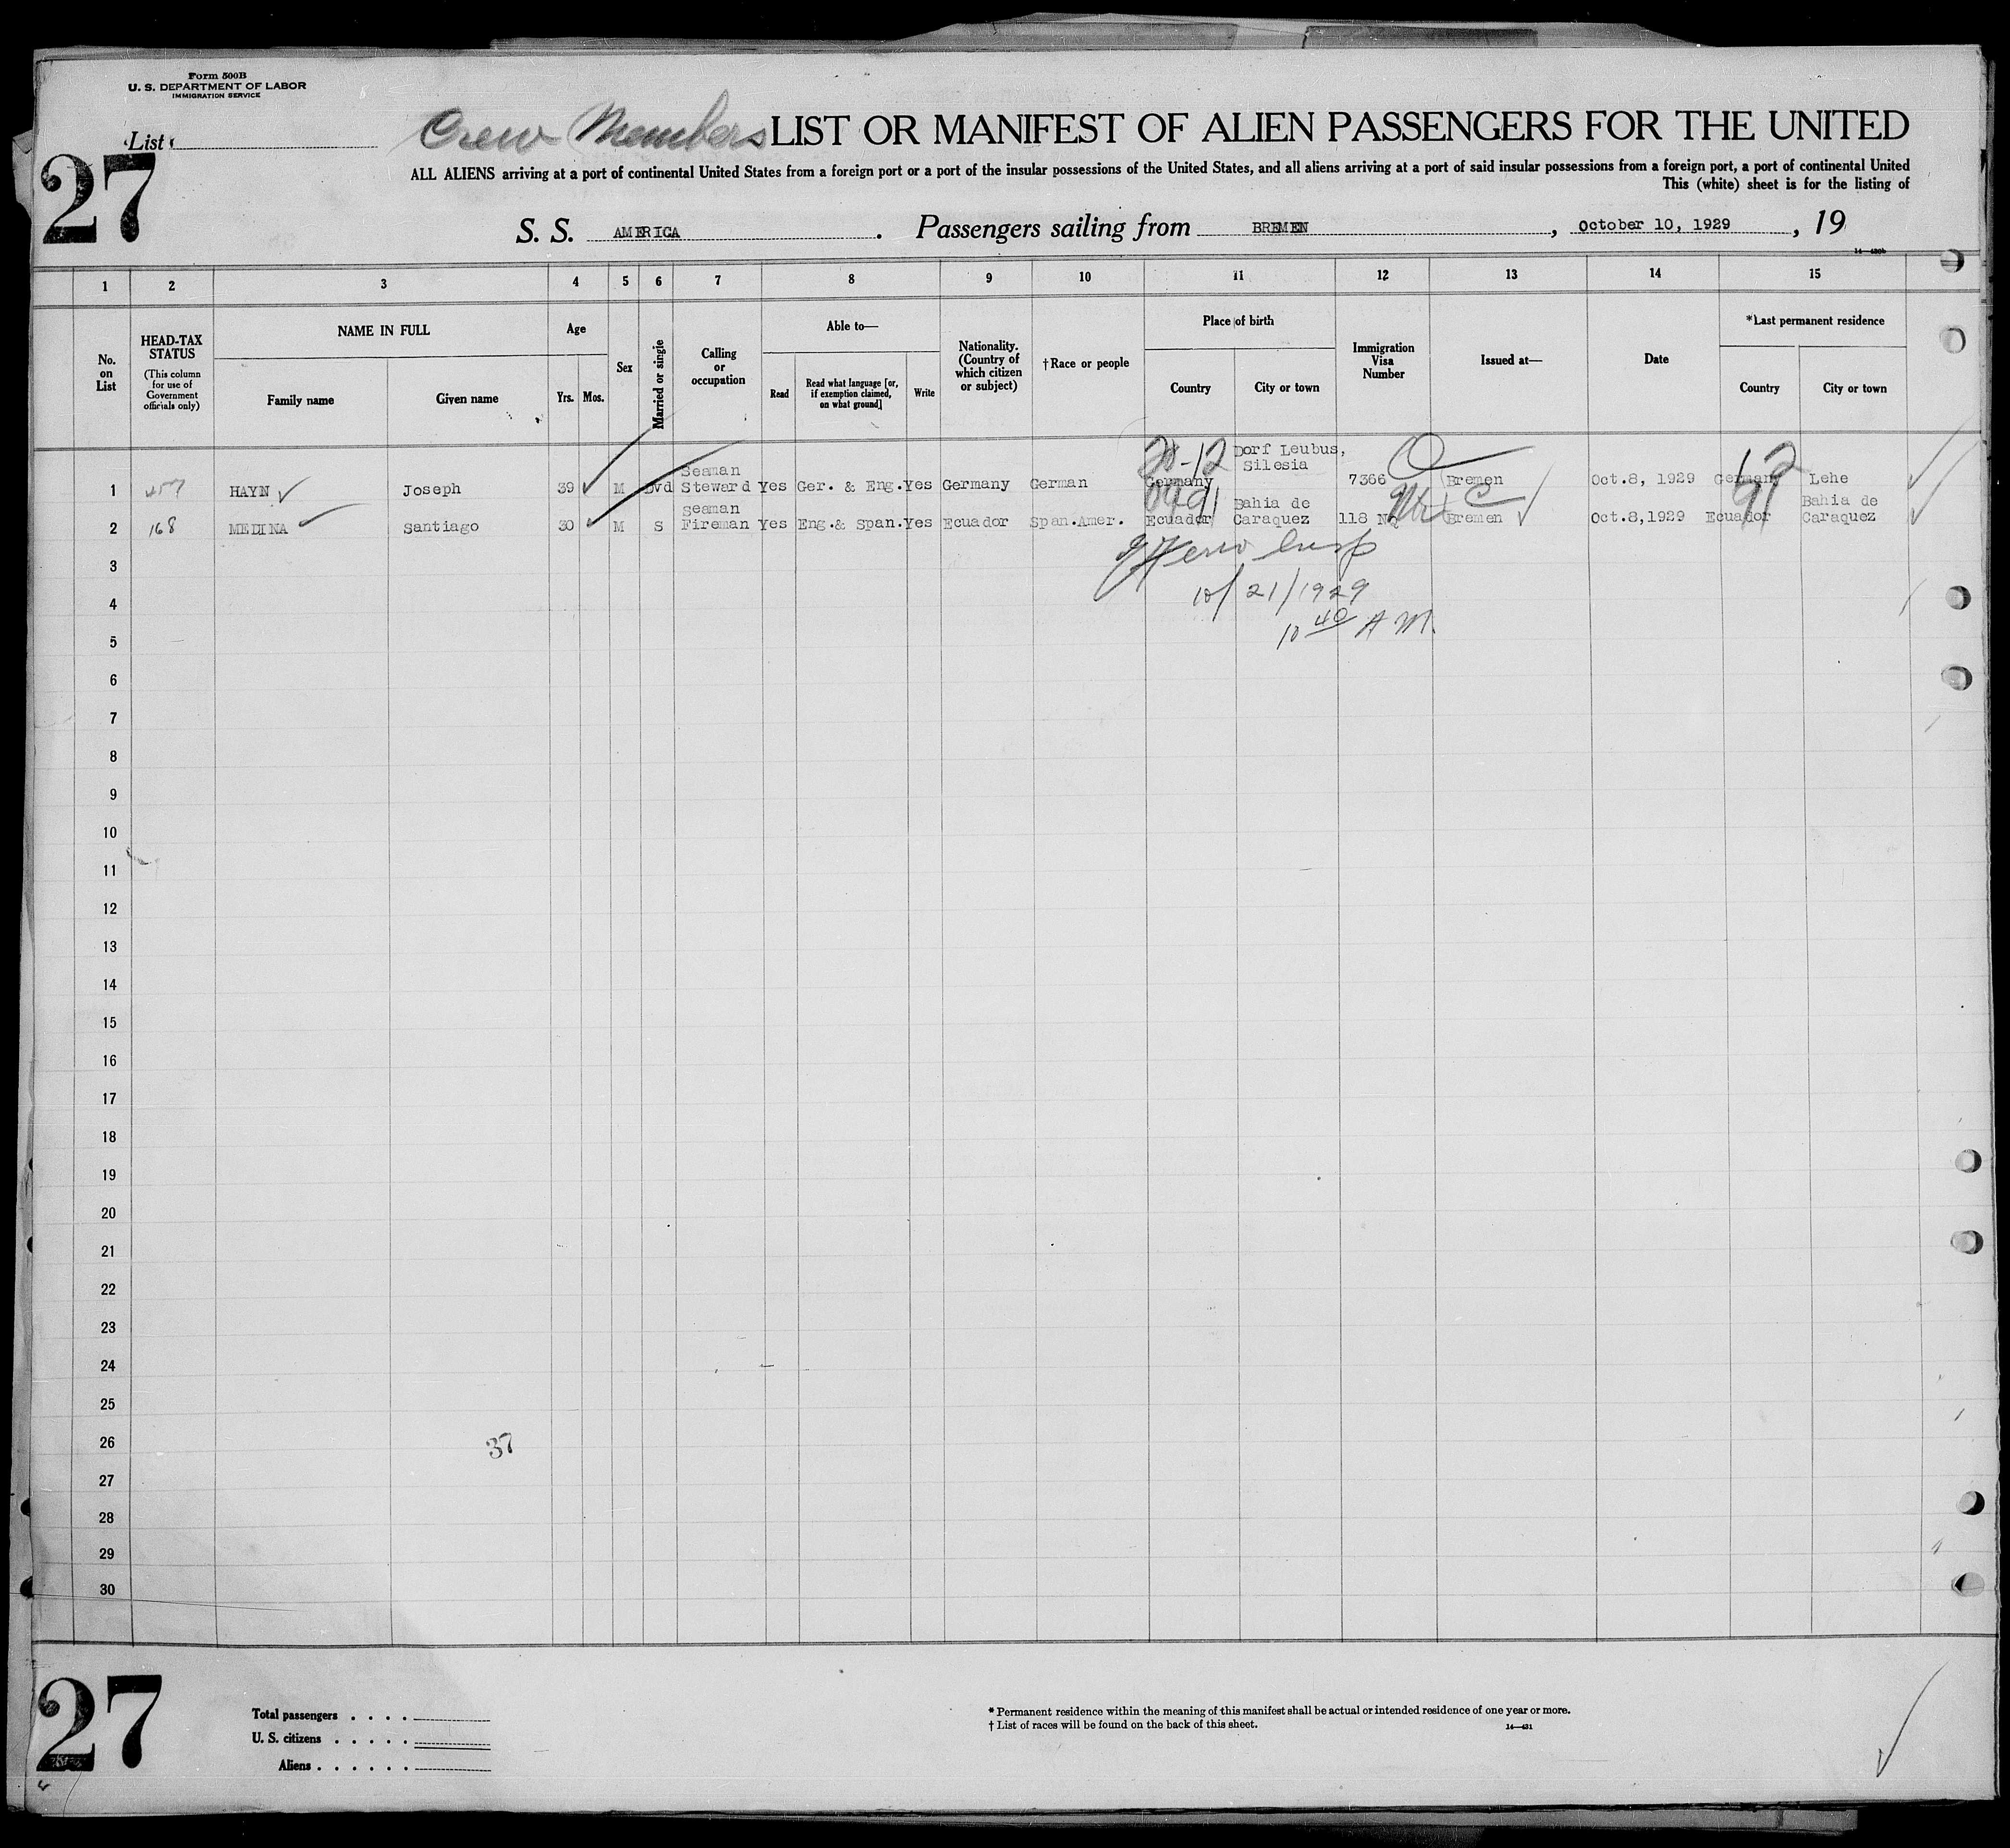 Form 500B
U. S. DEPARTMENT OF LABOR
IMMIGRATION SERVICE
List
27
Crew Members LIST OR MANIFEST OF ALIEN PASSENGERS FOR THE UNITED
ALL ALIENS arriving at a port of continental United States from a foreign port or a port of the insular possessions of the United States, and all aliens arriving at a port of said insular possessions from a foreign port, a port of continental United
This (white) sheet is for the listing of
S. S. AMERICA. Passengers sailing from BREMEN, October 10, 1929, 19
1 2 3 4 5 6 7 8 9 10 11 12 13 14 15
No. on List
HEAD-TAX STATUS
(This column for use of Government officials only)
NAME IN FULL
Family name
Given name
Age
Yrs. Mos.
Sex
Married or single
Calling or occupation
Able to—
Read
Read what language [or, if exemption claimed, on what ground]
Write
Nationality. (Country of which citizen or subject)
†Race or people
Place of birth
Country
City or town
Immigration Visa Number
Issued at—
Date
*Last permanent residence
Country
City or town
Seaman Dorf Leubus, Silesia
1 457 HAYN Joseph 39 M Dvd Steward Yes Ger. & Eng. Yes Germany German Germany 7366 Bremen Oct.8, 1929 Germany Lehe
Seaman Bahia de Bahia de
2 168 MEDINA Santiago 30 M S Fireman Yes Eng.& Span. Yes Ecuador Span.Amer. Ecuador Caraquez 118 NQ Bremen Oct.8,1929 Ecuador Caraquez
3
10/21/1929
4
10 40 A M.
5
6
7
8
9
10
11
12
13
14
15
16
17
18
19
20
21
22
23
24
25
26 37
27
28
29
30
27
Total passengers . . . .
U. S. citizens . . . . .
Aliens . . . . . .
* Permanent residence within the meaning of this manifest shall be actual or intended residence of one year or more.
† List of races will be found on the back of this sheet.
14—431